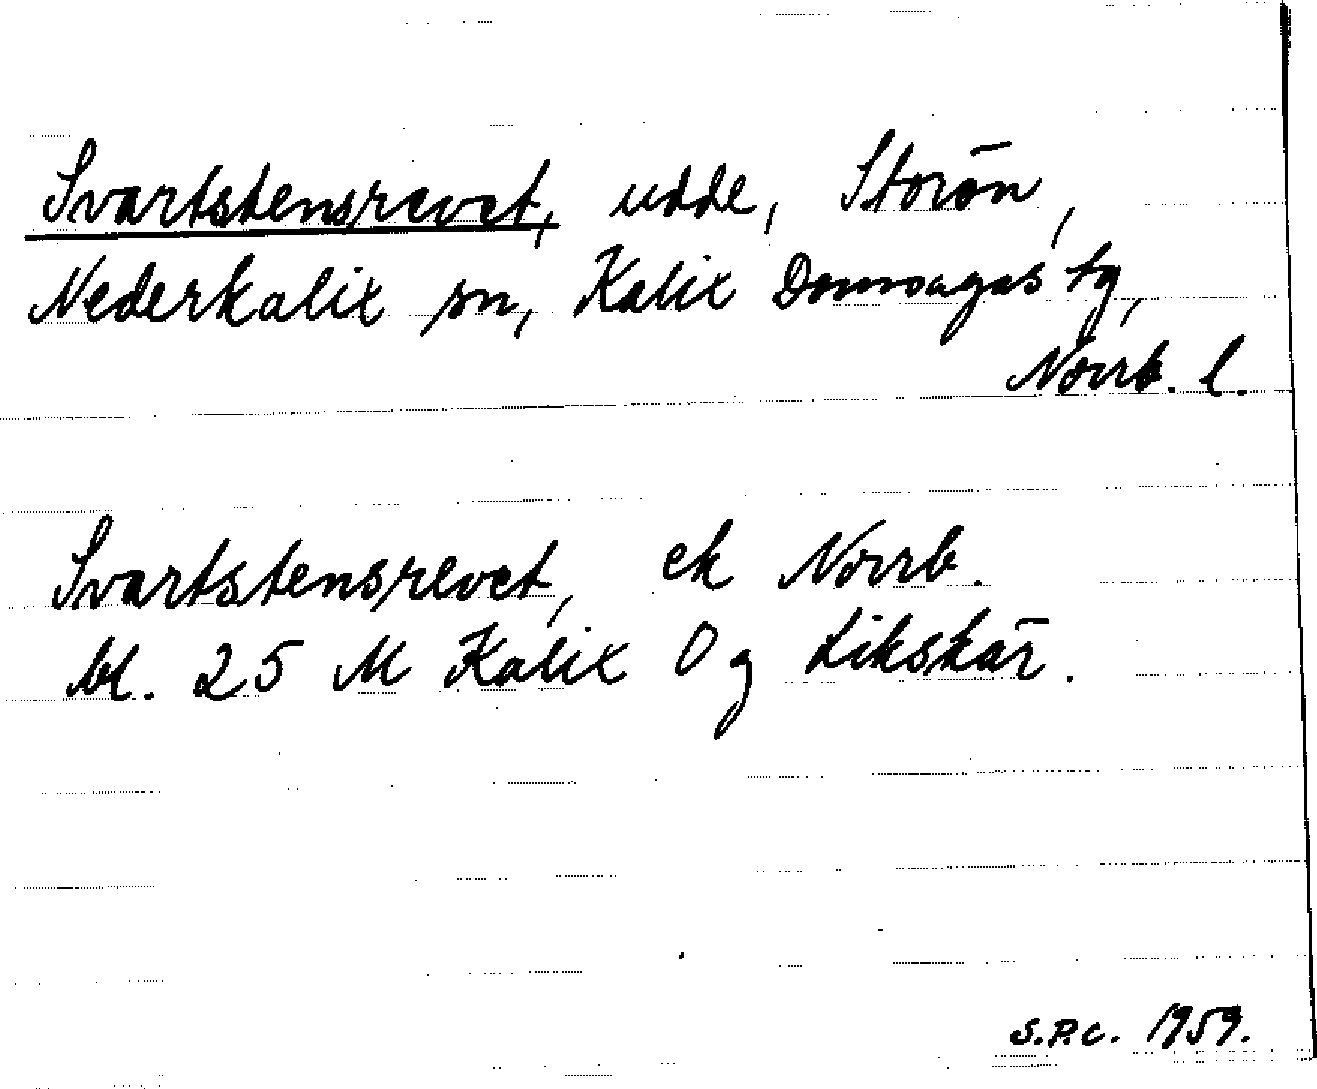 Svartstensrevet, udde, Storön,
Nederkalix sn, Kalix Domsagas tg,
Norrb. l.
Svartstensrevet, ek Norrb.
bl. 25 M Kalix O g Likskär.
S.P.C. 1959.